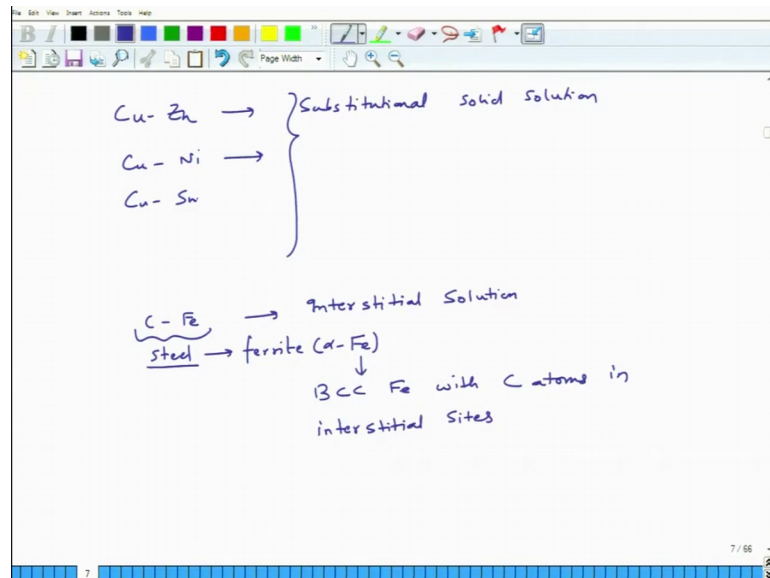 File Edit View Insert Actions Tools Help
B I
Page Width
Cu - Zn → } Substitutional solid solution
Cu - Ni →
Cu - Sn
C - Fe → Interstitial Solution
steel → ferrite (α-Fe)
↓
BCC Fe with C atoms in
interstitial sites
7 / 66
7